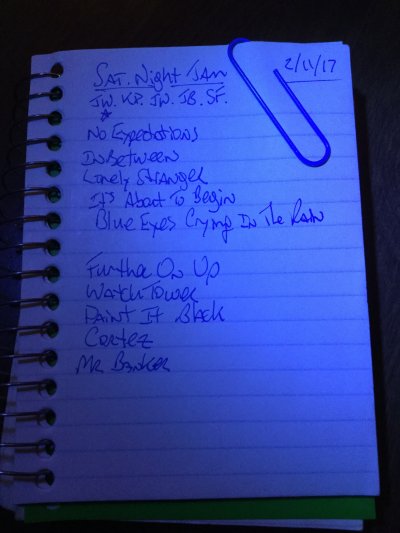 Sat. Night Jam
2/11/17
JW. KP. JW. JB. SF.
No Expectations
In Between
Lonely Stranger
It's About To Begin
Blue Eyes Crying In The Rain
Further On Up
Watch Tower
Paint It Black
Cortez
Mr Banker